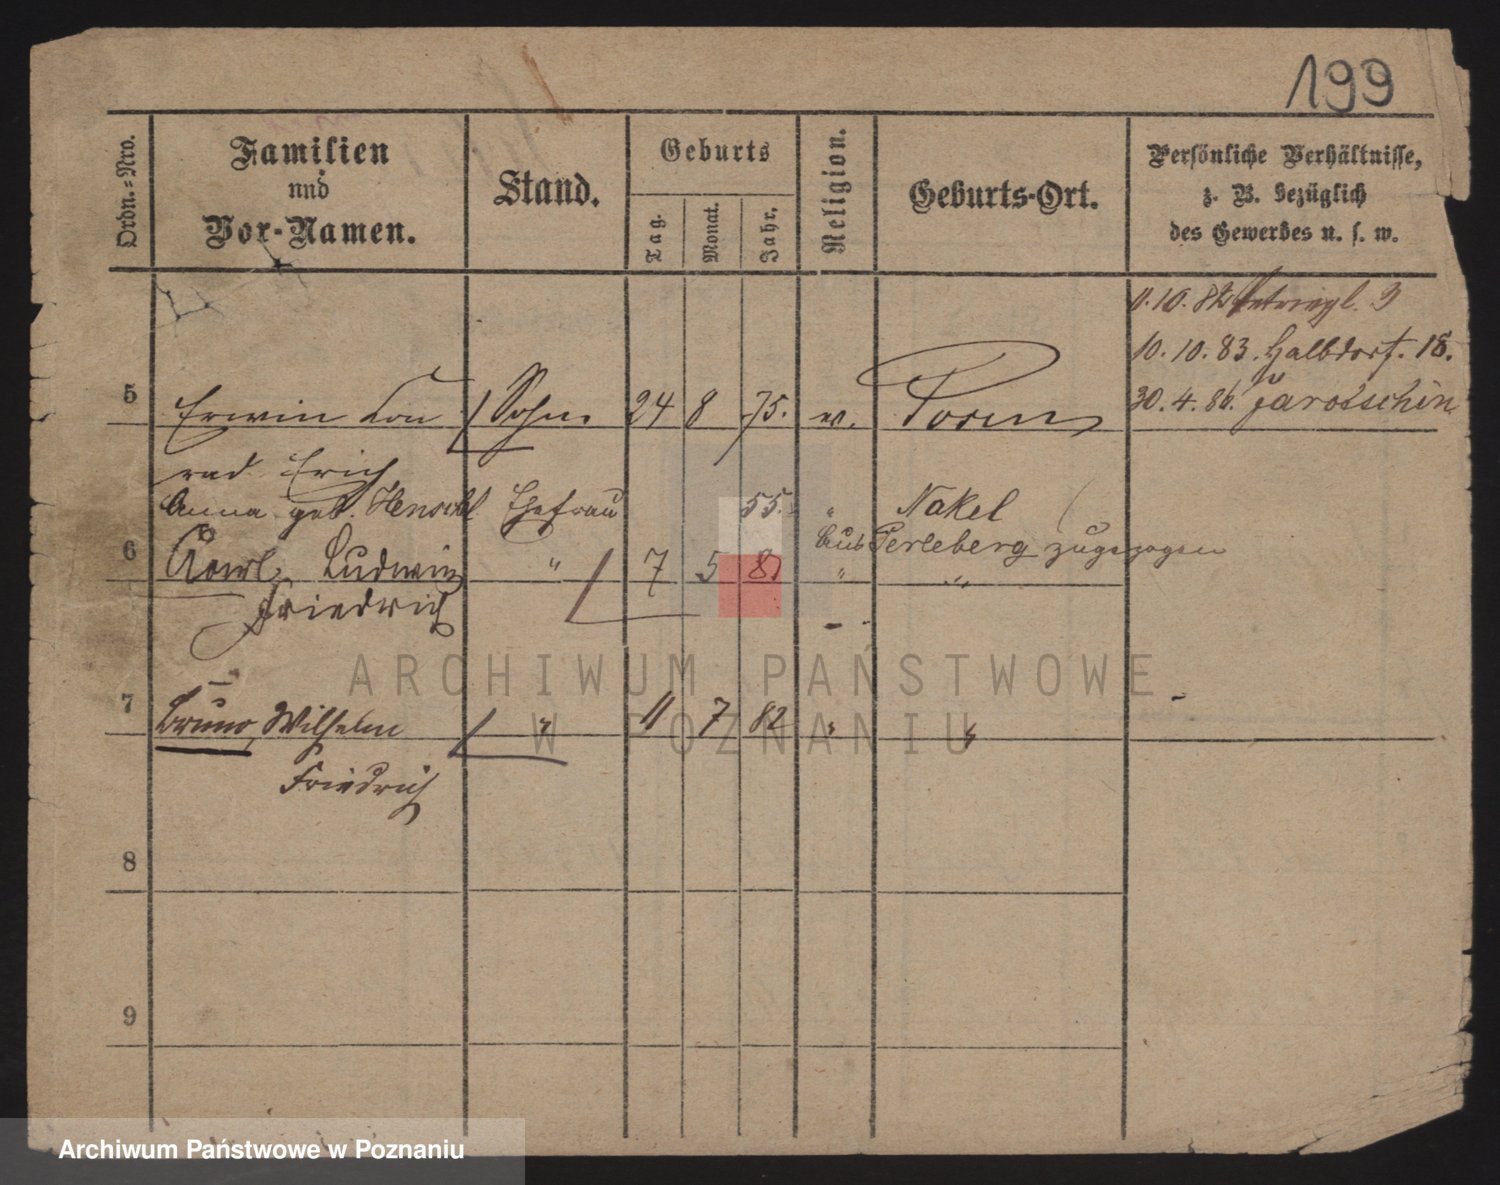 199
Ordn.-Nro.
Familien
und
Vor-Namen.
Stand.
Geburts
Tag.
Monat.
Jahr.
Religion.
Geburts-Ort.
Persönliche Verhältnisse,
z. B. bezüglich
des Gewerbes u. s. w.
11. 10. 82 9
10. 10. 83. Halbdorf. 18.
30. 4. 86. Jarotschin
5 Erwin Con Sohn 24 8 75. ev. Posen
rad Erich
Anna geb. Henschel Ehefrau 55. " Nakel
aus Perleberg zugezogen
6 Karl Ludwig " 7 5 81 " "
Friedrich
7 Bruno, Wilhelm " 11 7 82 " "
Friedrich
8
9
ARCHIWUM PAŃSTWOWE
W POZNANIU
Archiwum Państwowe w Poznaniu